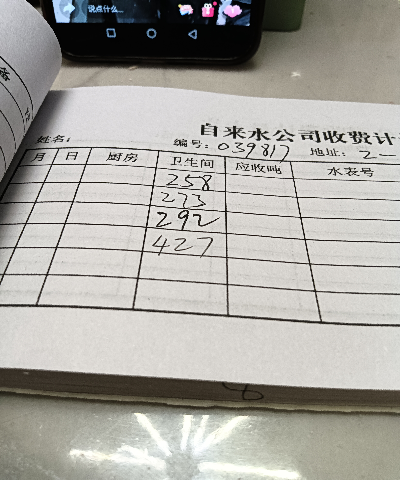 说点什么...
自来水公司收费计
姓名: 编号: 039817 地址: 2-
月 日 厨房 卫生间 应收吨 水表号
258
273
292
427